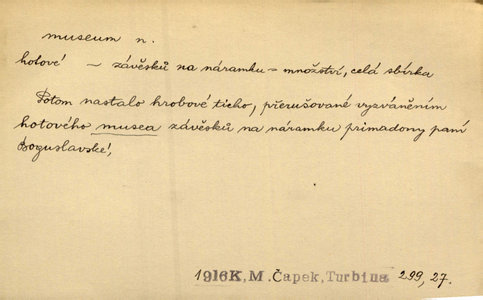 museum n.
hotové – závěsků na náramku = množství, celá sbírka
Potom nastalo hrobové ticho, přerušované vyzváněním
hotového musea závěsků na náramku primadony paní
Boguslavské,
1916K, M. Čapek, Turbina 299, 27.